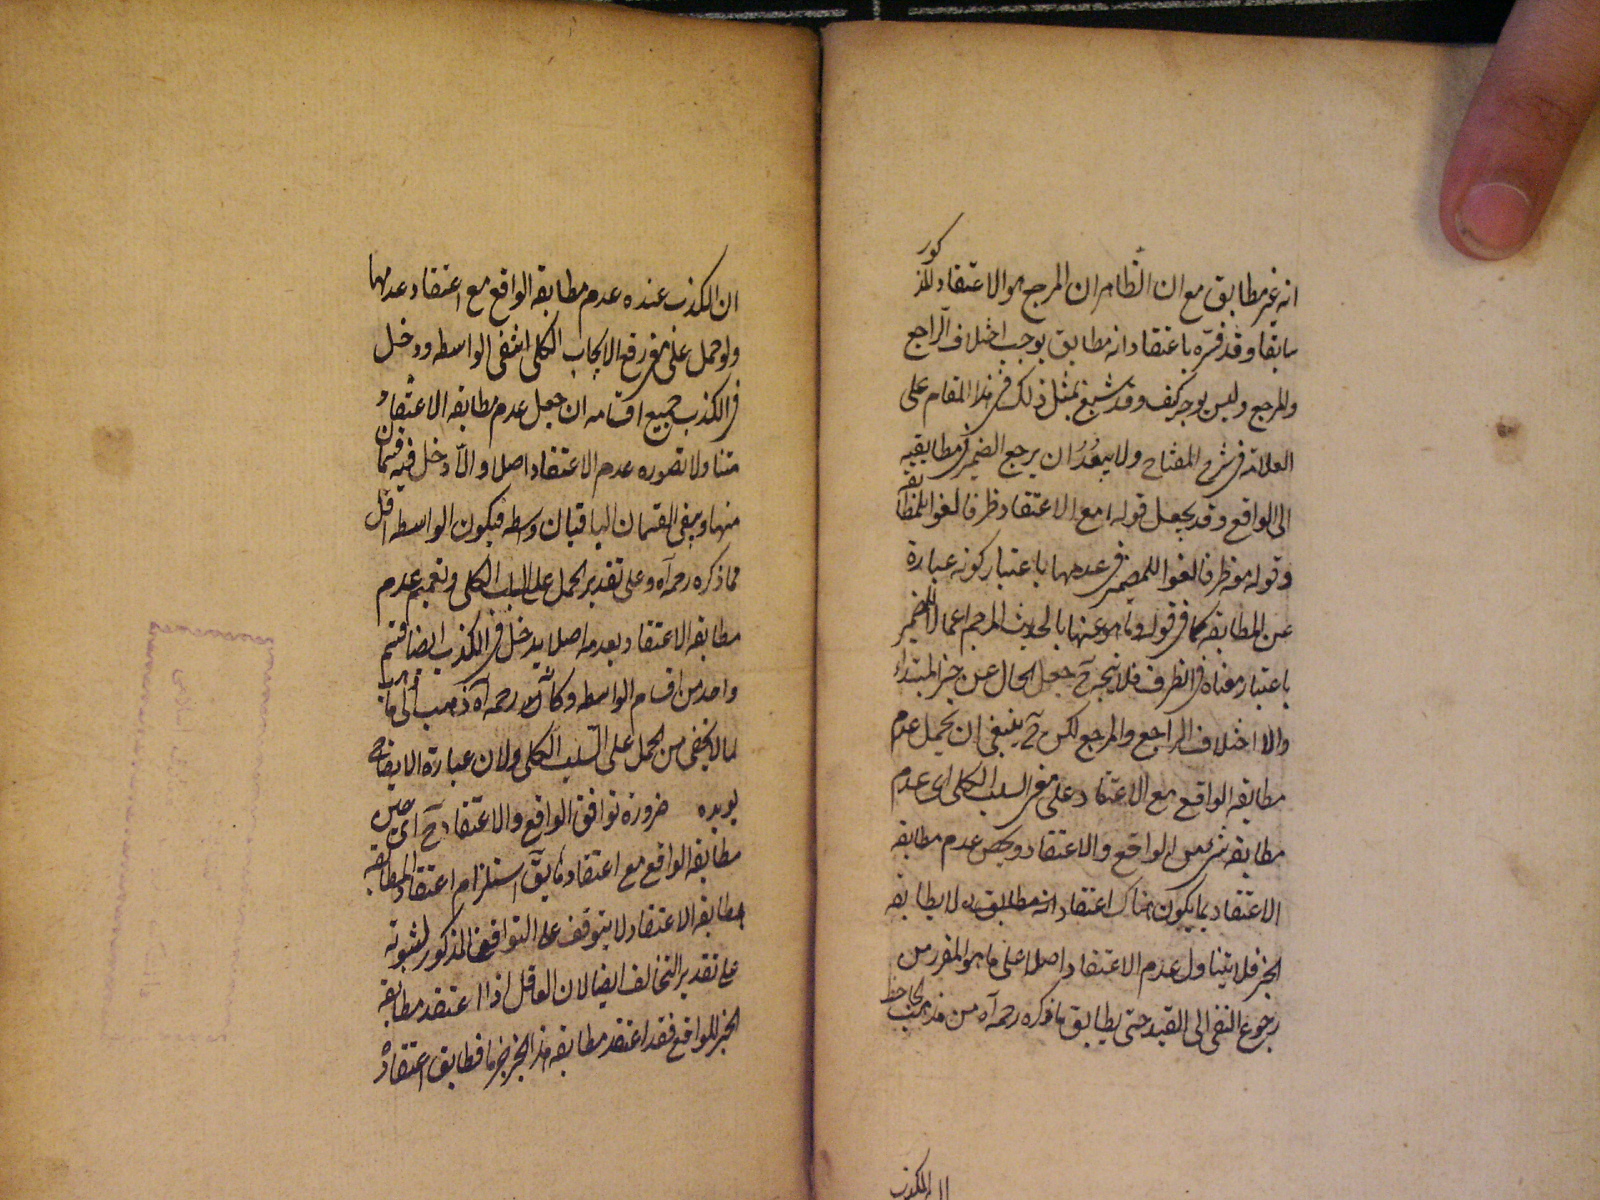 انه غير مطابق مع ان الظاهر ان المرجع هو الاعتقاد المذكور
سابقا وقد فسره باعتقاد انه مطابق يوجب اختلاف الراجع
والمرجع وليس بوجه كيف وقد شنع بمثل ذلك في هذا المقام على
العلامة في شرح المفتاح ولا يبعد ان يرجع الضمير في مطابقيه
الى الواقع وقد يجعل قوله مع الاعتقاد ظرفا لغوا للمطابقة
وقوله معه ظرفا لغوا للمضمر في عدمها باعتبار كونه عبارة
عن المطابقه كما في قوله وما هو عنها بالحديث المرجم اعمالا للضمير
باعتبار معناه في الظرف فلا يتجه ح جعل الحال عن خبر المبتداء
والا اختلاف الراجع والمرجع لكن ح ينبغي ان يحمل عدم
مطابقه الواقع مع الاعتقاد على معنى السلب الكلي اي عدم
مطابقه شيء من الواقع والاعتقاد ويخص عدم مطابقه
الاعتقاد بما يكون هناك اعتقاد انه مطابق ولا يطابقه
الخبر فلا يتناول عدم الاعتقاد اصلا على ما هو المقرر من
رجوع النفي الى القيد حتى يطابق ما ذكره رحمه الله من مذهب الجاحظ
ان الكذب عنده عدم مطابقه الواقع مع اعتقاد عدمها
ولو حمل على معنى رفع الايجاب الكلي انتفى الواسطه ودخل
في الكذب جميع اقسامه ان جعل عدم مطابقه الاعتقاد
متناولا لصوره عدم الاعتقاد اصلا والا دخل فيه قسمان
منها ويبقى القسمان الباقيان وسطه فيكون الواسطه اقل
مما ذكره رحمه الله وعلى تقدير الحمل على السلب الكلي وتعميم عدم
مطابقه الاعتقاد بعدمه اصلا يدخل في الكذب ايضا قسم
واحد من اقسام الواسطه وكانه رحمه الله ذهب الى ما
لما لا يخفى من الحمل على السلب الكلي ولان عبارة الايضاح
يويده ضرورة توافق الواقع والاعتقاد ح اي حين
مطابقه الواقع مع اعتقاد ما يق استلزام اعتقاد المطابقة
مطابقه الاعتقاد لا يتوقف على التوافق المذكور لثبوته
على تقدير التخالف ايضا لان العاقل اذا اعتقد مطابقة
الخبر للواقع فقد اعتقد مطابقه هذا الخبر جزما فطابق اعتقاده